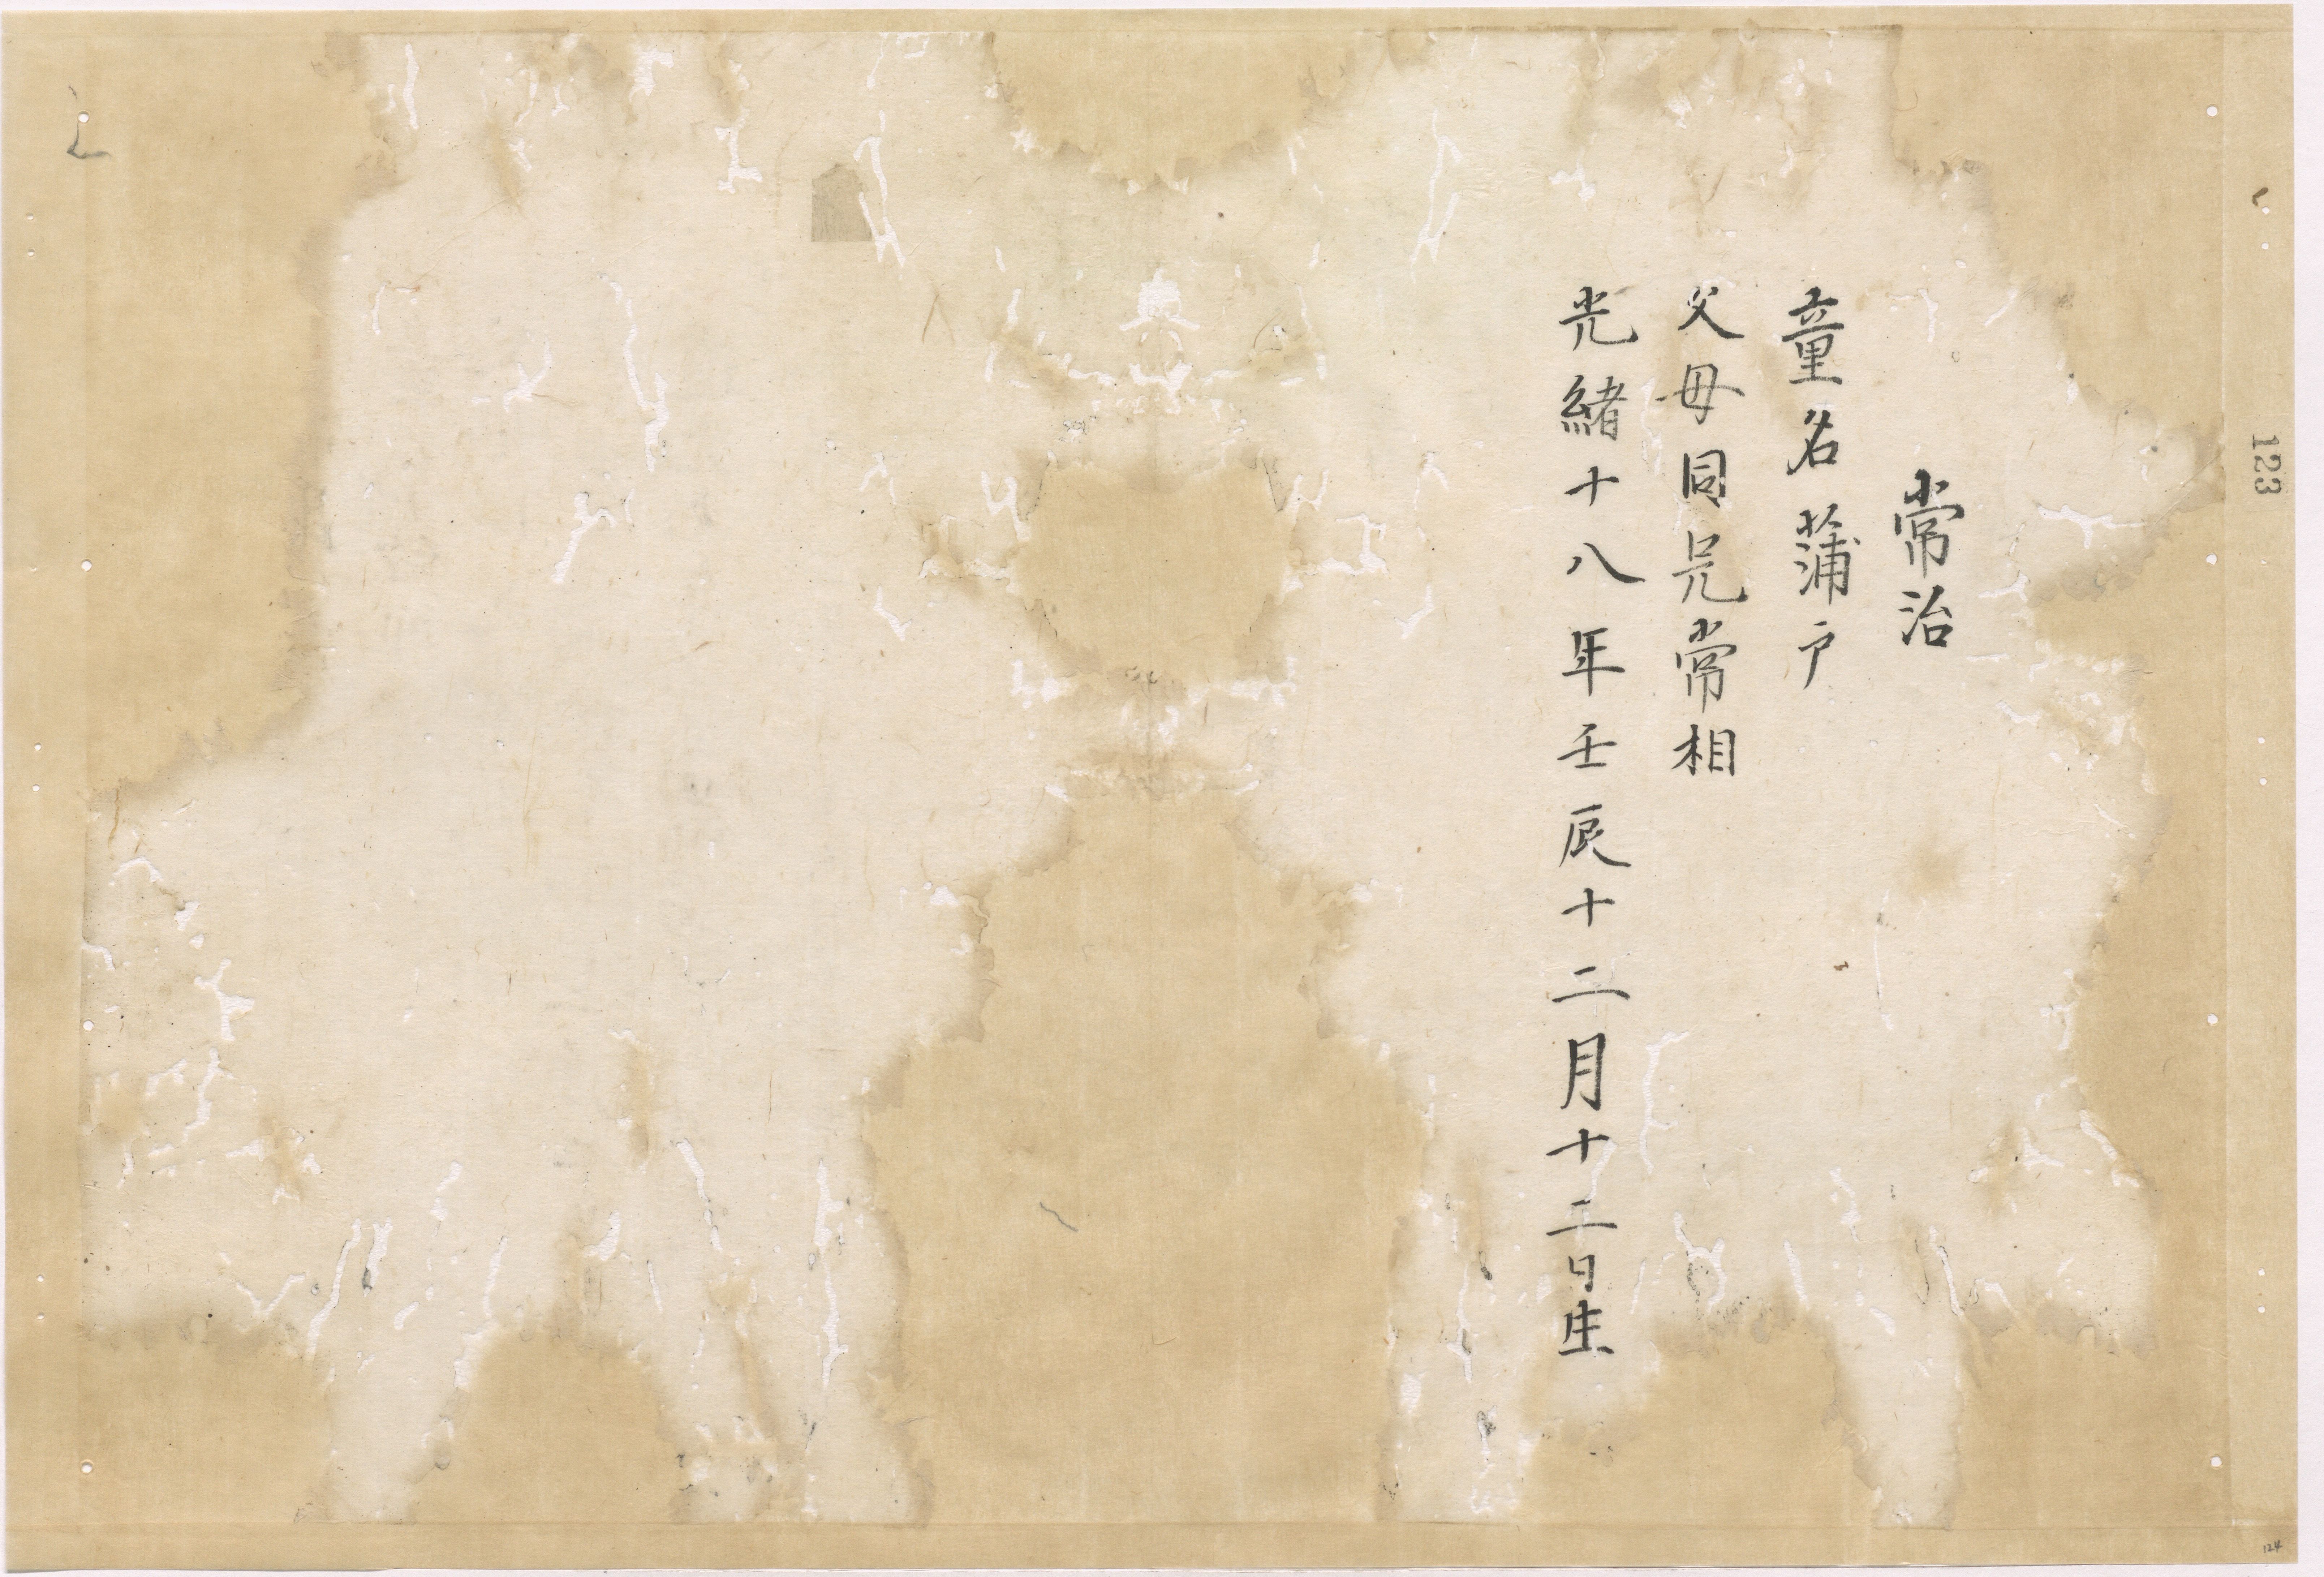 常治
童名蒲戸
父母同兄常相
光緒十八年壬辰十二月十二日生
123
124